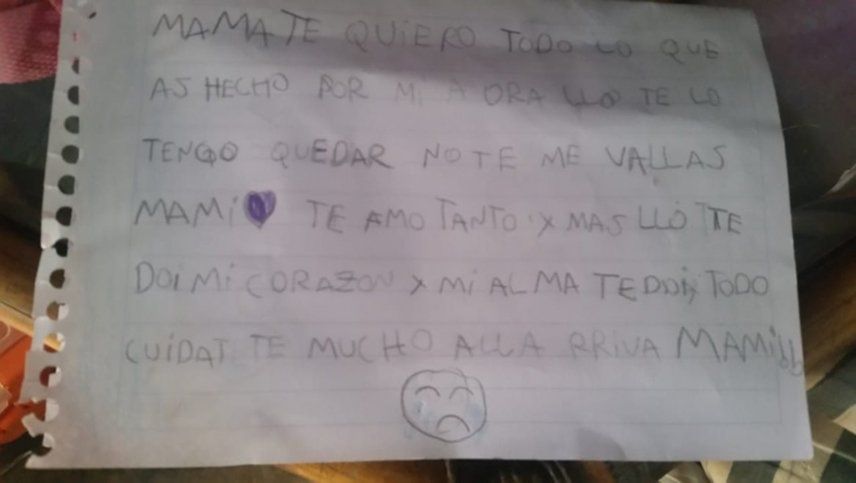 MAMA TE QUiERO TODO LO QUE
AS HECHO POR Mi A ORA LLO TE LO
TENGO QUEDAR NO TE ME VALLAS
MAMi TE AMO TANTO Y MAS LLO TTE
DOi Mi CORAZON Y Mi ALMA TE DOiY TODO
CUiDAT TE MUCHO ALLA RRIVA MAMi